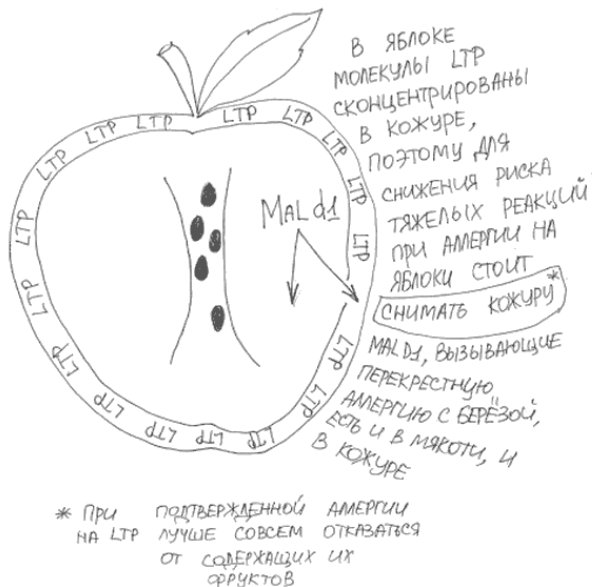 LTP LTP LTP LTP LTP
LTP
LTP
LTP
LTP
LTP
LTP
LTP
LTP
LTP
LTP
LTP
LTP
LTP
LTP
MAL d1
В ЯБЛОКЕ
МОЛЕКУЛЫ LTP
СКОНЦЕНТРИРОВАНЫ
В КОЖУРЕ,
ПОЭТОМУ ДЛЯ
СНИЖЕНИЯ РИСКА
ТЯЖЕЛЫХ РЕАКЦИЙ
ПРИ АЛЛЕРГИИ НА
ЯБЛОКИ СТОИТ
СНИМАТЬ КОЖУРУ*
MAL D1, ВЫЗЫВАЮЩИЕ
ПЕРЕКРЕСТНУЮ
АЛЛЕРГИЮ С БЕРЁЗОЙ,
ЕСТЬ И В МЯКОТИ, И
В КОЖУРЕ
* ПРИ ПОДТВЕРЖДЕННОЙ АЛЛЕРГИИ
НА LTP ЛУЧШЕ СОВСЕМ ОТКАЗАТЬСЯ
ОТ СОДЕРЖАЩИХ ИХ
ФРУКТОВ